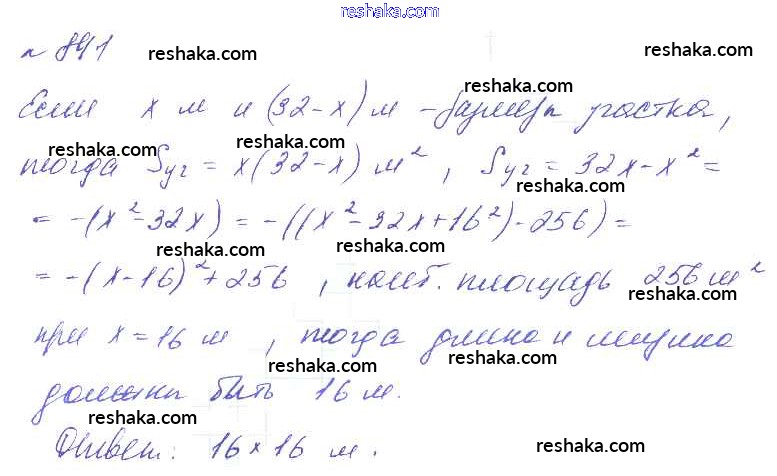 reshaka.com
n 841
reshaka.com
reshaka.com
reshaka.com
Если x м и (32-x) м - размеры участка,
reshaka.com
reshaka.com
тогда Sуч = x(32-x) м², Sуч = 32x-x² =
reshaka.com
= -(x²-32x) = -((x²-32x+16²)-256) =
reshaka.com
reshaka.com
= -(x-16)²+256, наиб. площадь 256 м²
reshaka.com
при x = 16 м, тогда длина и ширина
reshaka.com
reshaka.com
должны быть 16 м.
reshaka.com
Ответ: 16×16 м.
reshaka.com